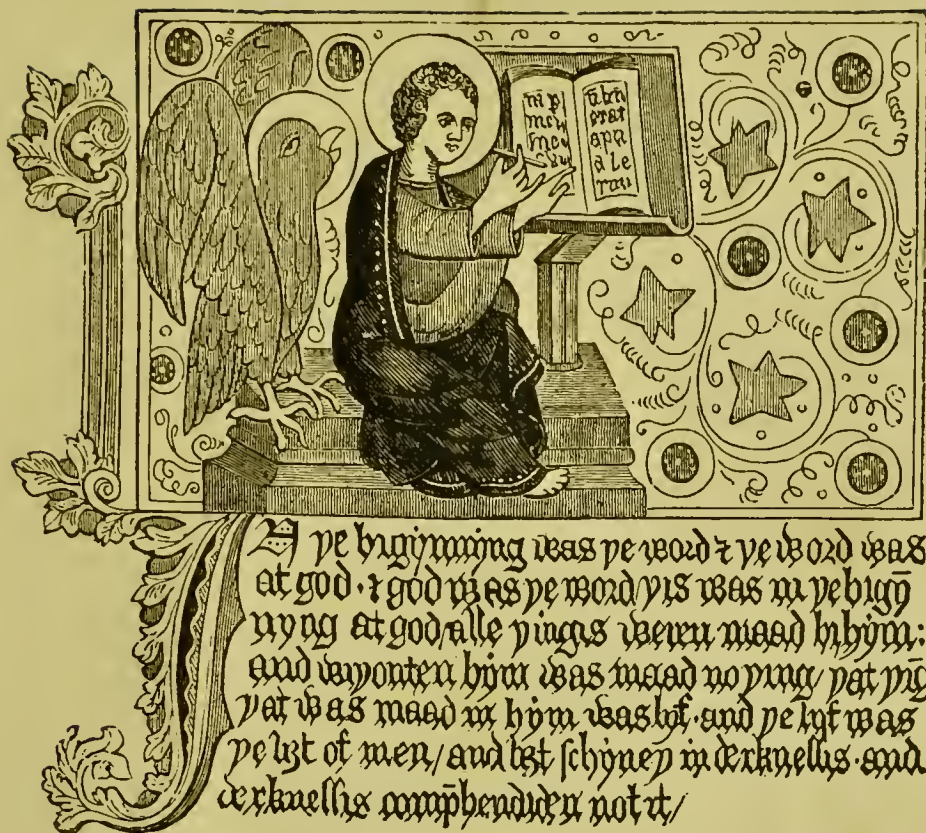 IN þe bigynnyng was þe word ⁊ þe word was
at god · ⁊ god was þe word / þis was in þe bigyn̄
nyng at god / alle þingis weren maad bi hym :
and wiþouten hym was maad no þing / þat þīg
þat was maad in hym was lyf · and þe lyf was
þe liȝt of men / and liȝt schyneþ in derknessis · and
derknessis comp̄hendiden not it /